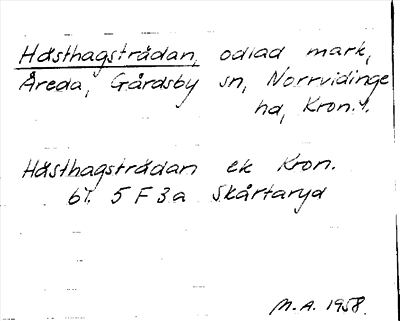 Hästhagsträdan, odlad mark,
Åreda, Gårdsby sn, Norrvidinge
hd, Kron. l.
Hästhagsträdan ek Kron.
bl. 5 F 3a Skårtaryd
M.A. 1958.